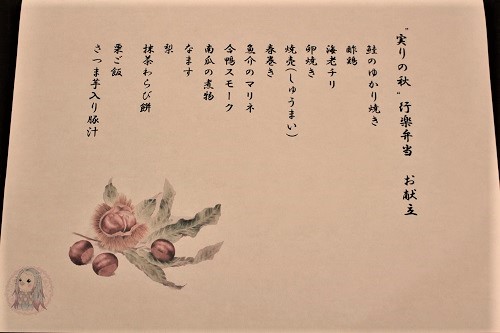 "実りの秋"行楽弁当 お献立
鮭のゆかり焼き
酢鶏
海老チリ
卵焼き
焼売(しゅうまい)
春巻き
魚介のマリネ
合鴨スモーク
南瓜の煮物
なます
梨
抹茶わらび餅
栗ご飯
さつま芋入り豚汁